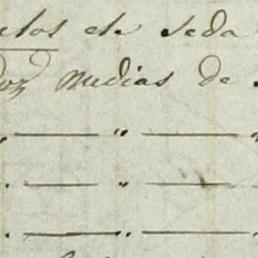 elos de seda
doz medias de
" — " —
" — " —
" — " —